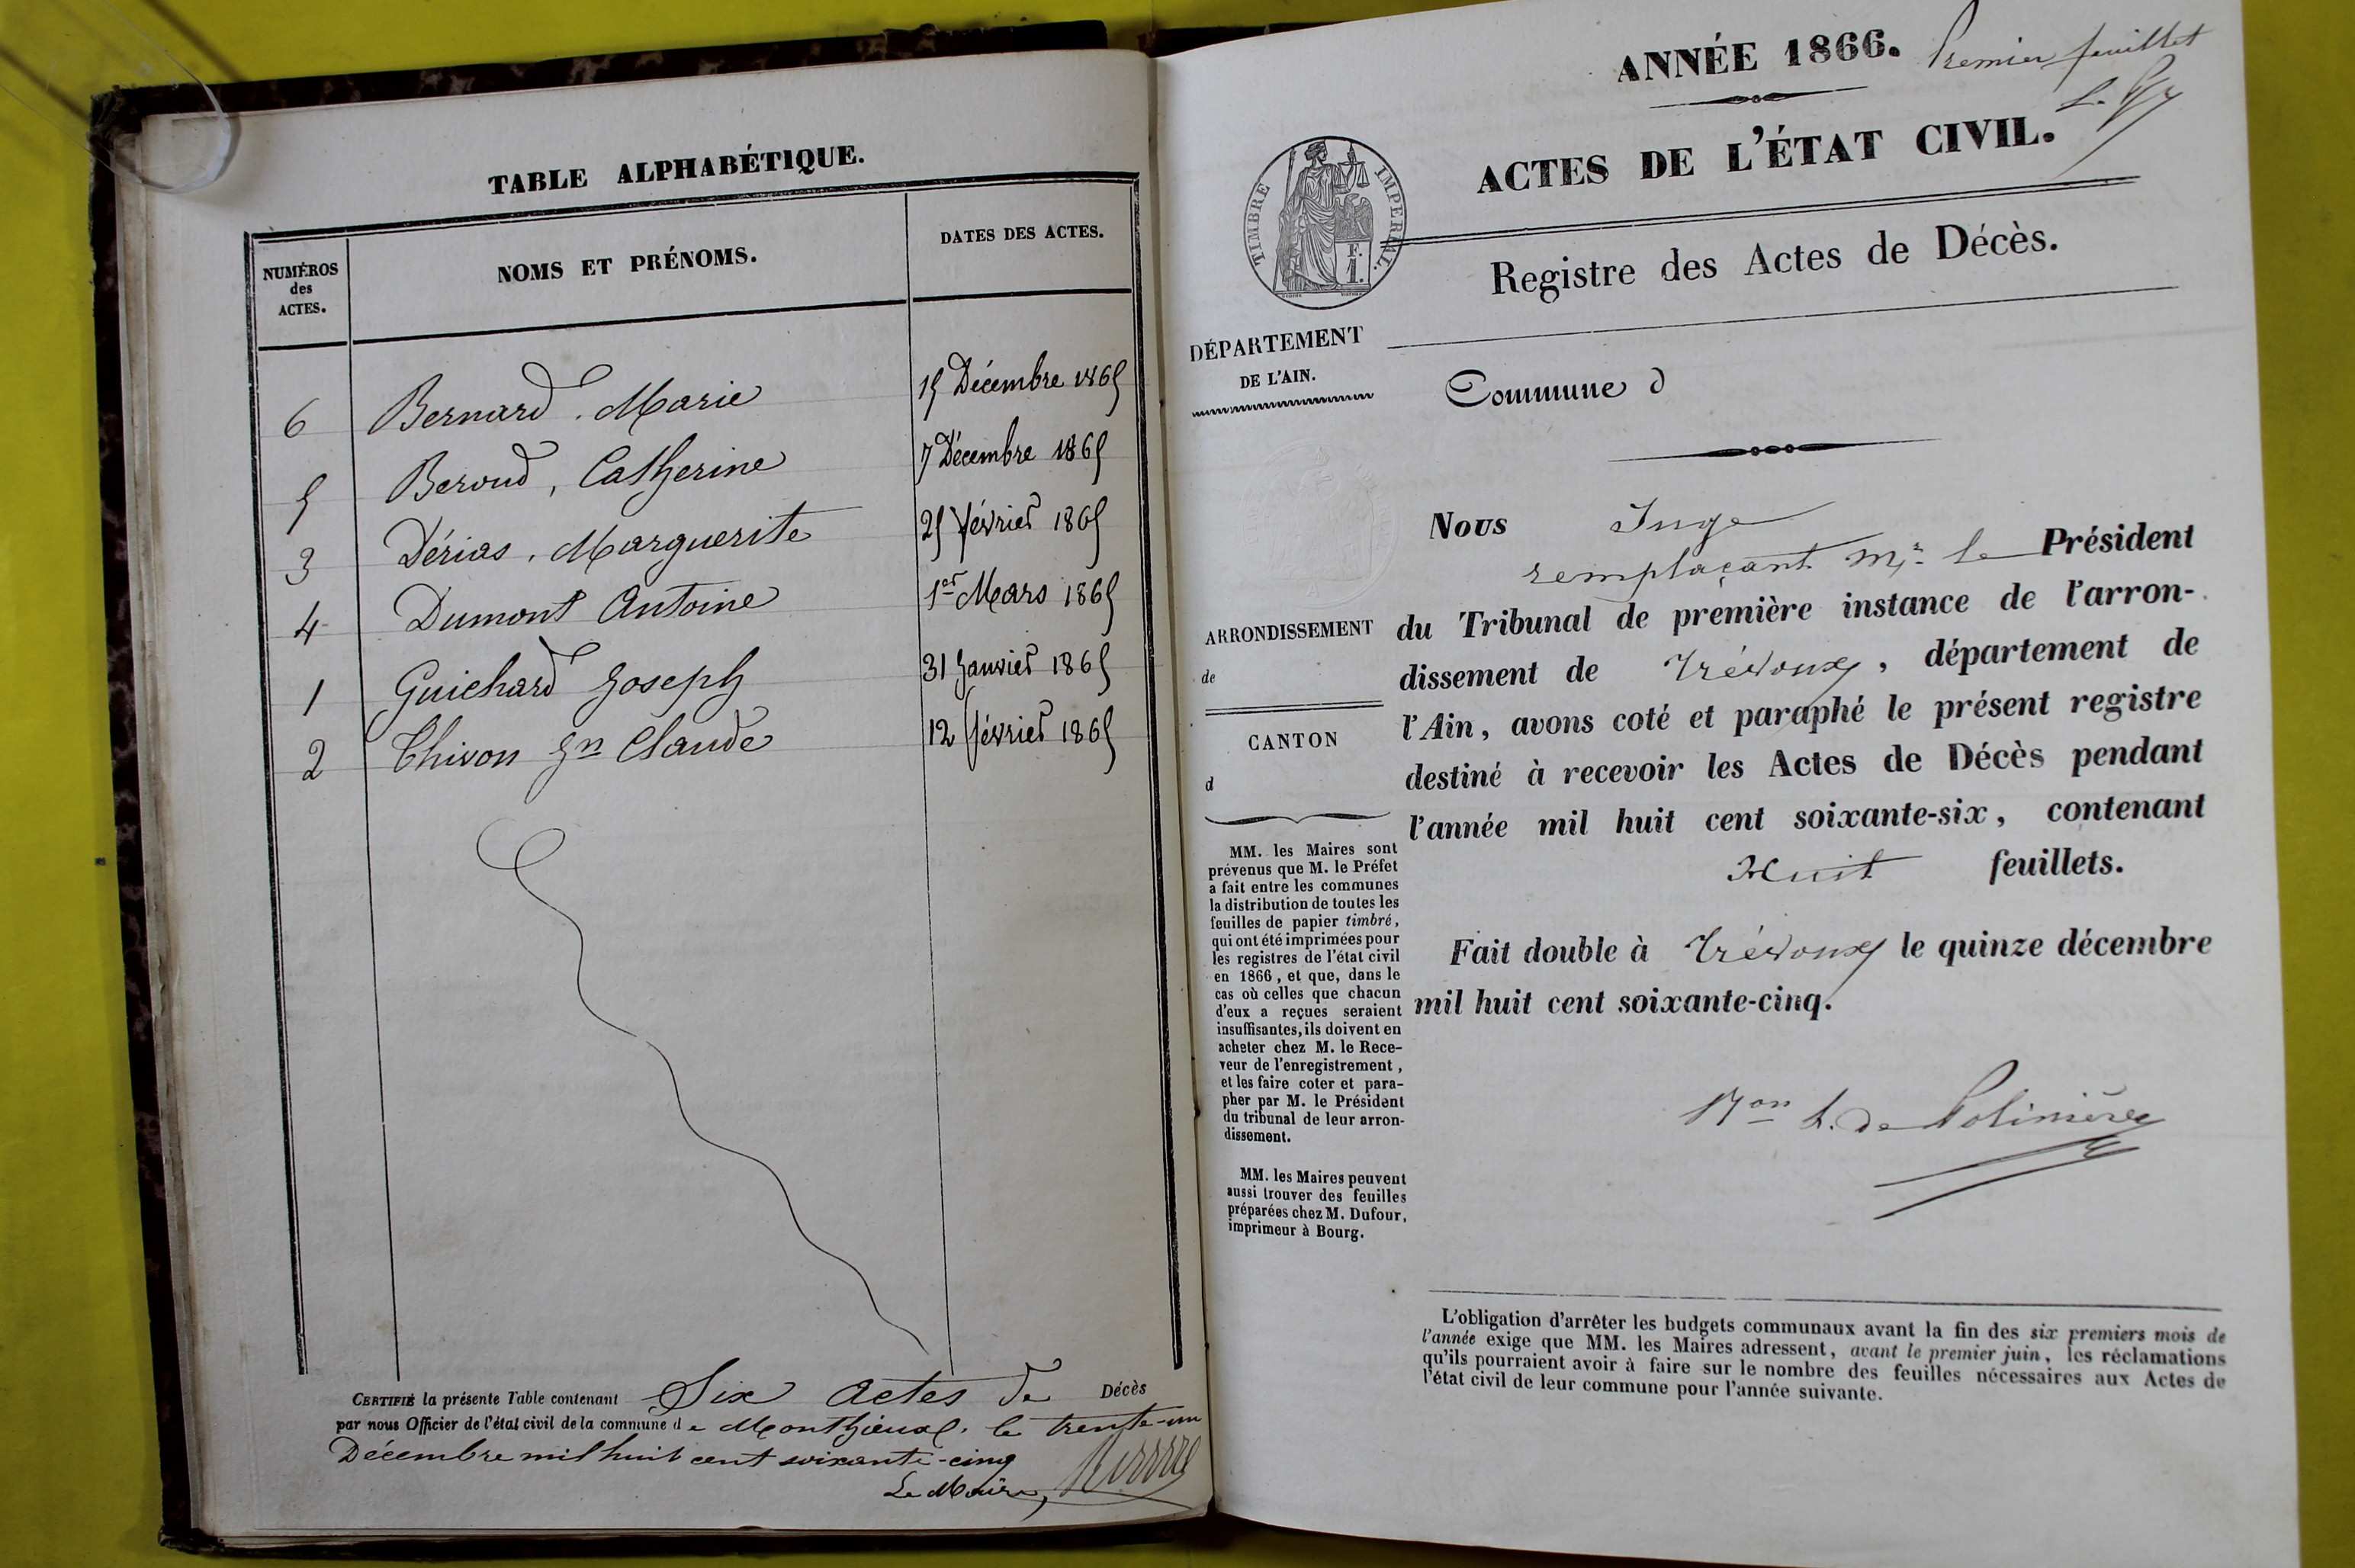 TABLE ALPHABÉTIQUE.
NUMÉROS
des
ACTES.
NOMS ET PRÉNOMS.
DATES DES ACTES.
6 Bernard. Marie 15 Décembre 1865
5 Beroud, Catherine 7 Décembre 1865
3 Dérias, Marguerite 25 février 1865
4 Dumont Antoine 1er Mars 1865
1 Guichard Joseph 31 Janvier 1865
2 Thivon Jn Claude 12 février 1865
CERTIFIÉ la présente Table contenant Six Actes de Décès
par nous Officier de l'état civil de la commune de Monthieux, le trente-un
Décembre mil huit cent soixante-cinq
Le Maire,
ANNÉE 1866. Premier feuillet
ACTES DE L'ÉTAT CIVIL.
TIMBRE IMPERIAL.
F.
1.
Registre des Actes de Décès.
DÉPARTEMENT
DE L'AIN.
Commune d
ARRONDISSEMENT
de
CANTON
d
MM. les Maires sont
prévenus que M. le Préfet
a fait entre les communes
la distribution de toutes les
feuilles de papier timbré,
qui ont été imprimées pour
les registres de l'état civil
en 1866, et que, dans le
cas où celles que chacun
d'eux a reçues seraient
insuffisantes, ils doivent en
acheter chez M. le Rece-
veur de l'enregistrement,
et les faire coter et para-
pher par M. le Président
du tribunal de leur arron-
dissement.
MM. les Maires peuvent
aussi trouver des feuilles
préparées chez M. Dufour,
imprimeur à Bourg.
Nous Juge
remplaçant Mr le Président
du Tribunal de première instance de l'arron-
dissement de Trévoux, département de
l'Ain, avons coté et paraphé le présent registre
destiné à recevoir les Actes de Décès pendant
l'année mil huit cent soixante-six, contenant
Huit feuillets.
Fait double à Trévoux le quinze décembre
mil huit cent soixante-cinq.
Bon L. de Polinière
L'obligation d'arrêter les budgets communaux avant la fin des six premiers mois de
l'année exige que MM. les Maires adressent, avant le premier juin, les réclamations
qu'ils pourraient avoir à faire sur le nombre des feuilles nécessaires aux Actes de
l'état civil de leur commune pour l'année suivante.